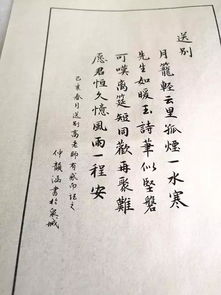 送别
月籠輕云里 孤煙一水寒
先生如暖玉 詩筆似堅磐
可嘆离筵短 同歡再聚難
愿君恒久憶 風雨一程安
己亥春月送别高老師有感而記之
仲韻涵書於奥城